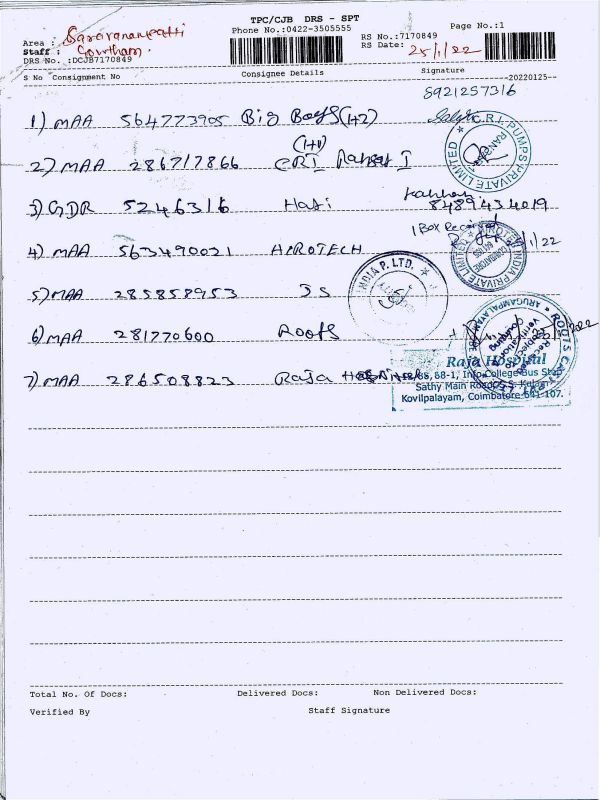 TPC/CJB DRS - SPT
Phone No.:0422-3505555
Page No.:1
Area : Saravanampatti
Staff : Gowtham.
RS No.:7170849
RS Date: 25/1/22
DRS No. :DCJB7170849
S No Consignment No Consignee Details Signature
20220125
8921257316
1) MAA 564773905 Big Boys (1+2)
C.R.I. PUMPS PRIVATE LIMITED
(1+1)
2) MAA 286717866 CRI I
3) GDR 5246316 Hari 8489434019
1 Box Received
4) MAA 563490021 AEROTECH
INDIA PRIVATE LIMITED
COIMBATORE
641 105
INDIA P. LTD.
5) MAA 285858953 SS
6) MAA 281770600 Roots
ROOTS
ARUGAMPALAYAM
7) MAA 286508823 Raja Hospital
Raja Hospital
88, 88-1, Info College Bus Stop
Sathy Main Road, S.S. Kulam
Kovilpalayam, Coimbatore-641 107.
Total No. Of Docs: Delivered Docs: Non Delivered Docs:
Verified By Staff Signature